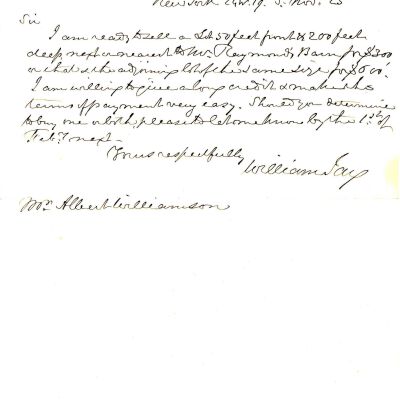 New York
Sir
I am ready to sell a Lot 50 feet front & 200 feet
deep next or nearest to Mr. Raymond's Barn for $300
or that & the adjoining lot of the same size for $500.
I am willing to give a long credit & make the
terms of payment very easy. Should you determine
to buy one or both, please to let me know by the 1st of
Feby next.
Yours respectfully
William Jay
Mr. Albert Williamson